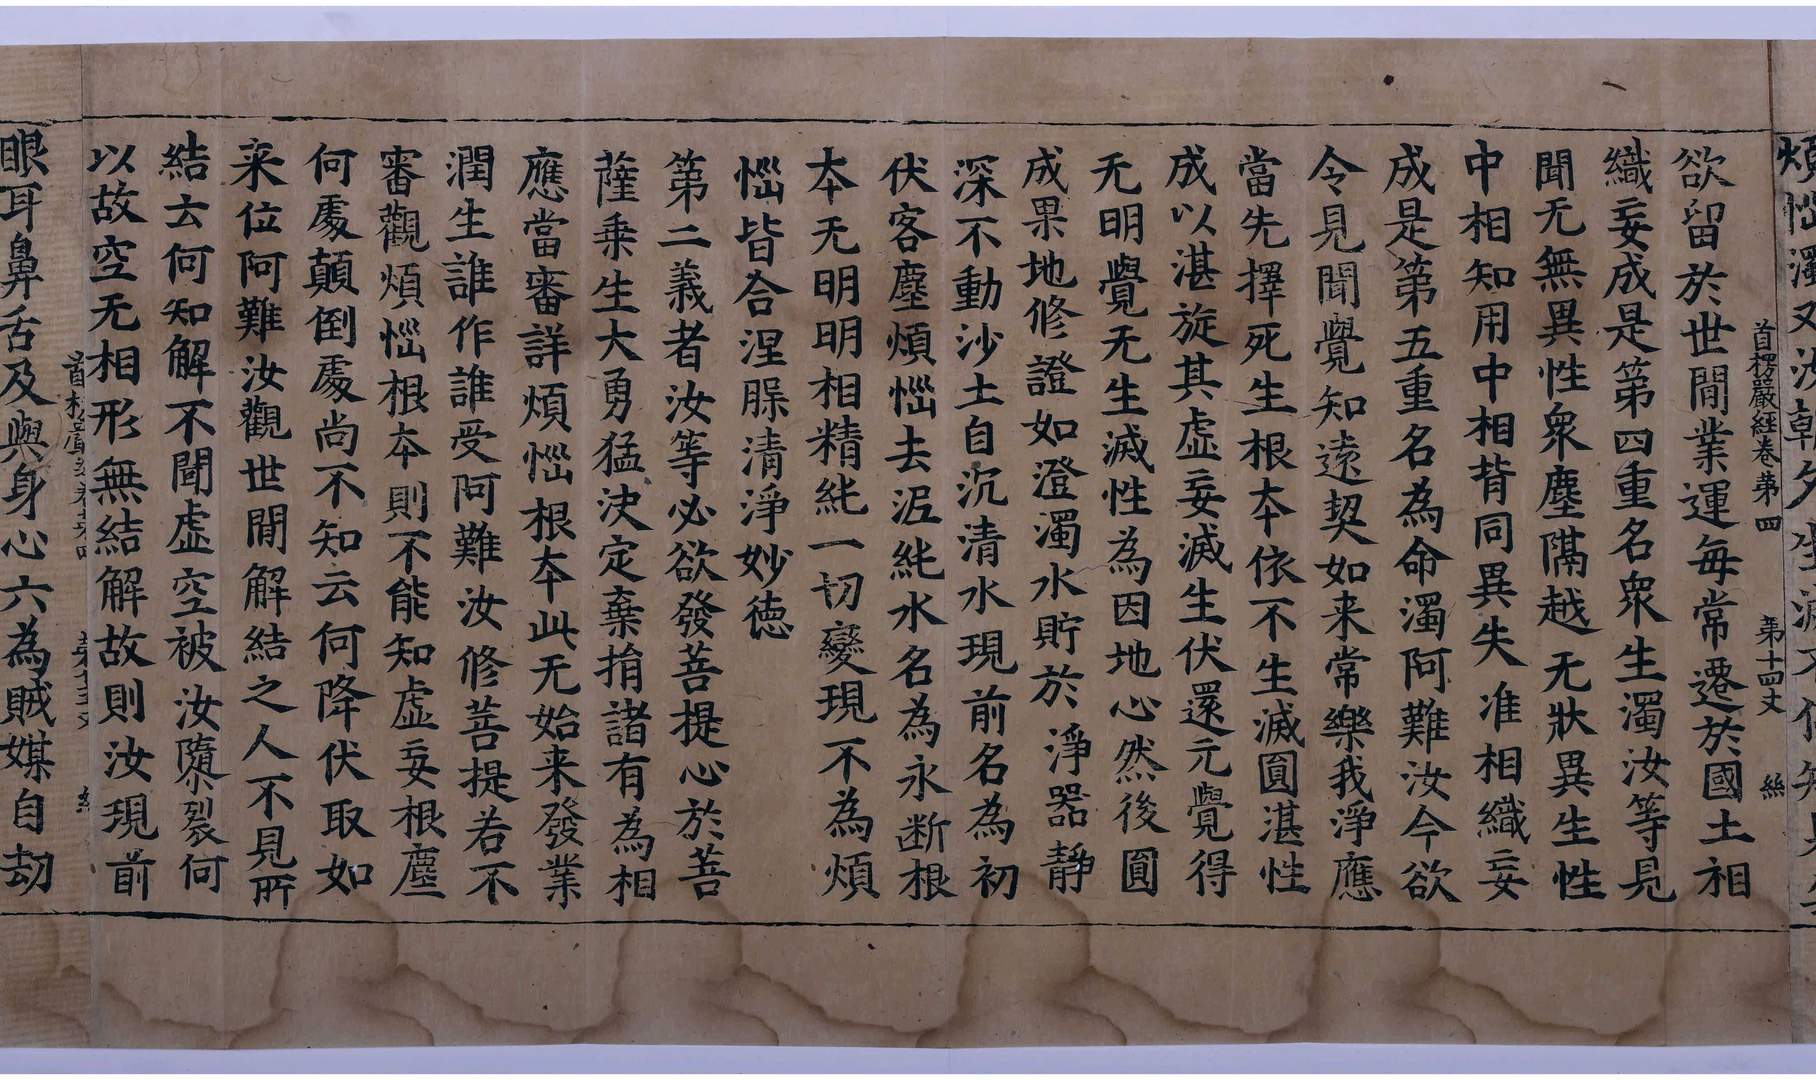 煩惱濁又汝朝夕生滅不停知見每
首楞嚴經卷第四　第十四丈　絲
欲留於世間業運每常遷於國土相
織妄成是第四重名衆生濁汝等見
聞无無異性衆塵隔越无狀異生性
中相知用中相背同異失准相織妄
成是第五重名為命濁阿難汝今欲
令見聞覺知遠契如来常樂我淨應
當先擇死生根夲依不生滅圓湛性
成以湛旋其虛妄滅生伏還元覺得
无明覺无生滅性為因地心然後圓
成果地修證如澄濁水貯於淨器靜
深不動沙土自沉清水現前名為初
伏客塵煩惱去泥純水名為永断根
夲无明明相精純一切變現不為煩
惱皆合涅槃清淨妙德
第二義者汝等必欲發菩提心於菩
薩乗生大勇猛決定棄捐諸有為相
應當審詳煩惱根夲此无始来發業
潤生誰作誰受阿難汝修菩提若不
審觀煩惱根夲則不能知虛妄根塵
何處顛倒處尚不知云何降伏取如
来位阿難汝觀世間解結之人不見所
結云何知解不聞虛空被汝隳裂何
以故空无相形無結解故則汝現前
眼耳鼻舌及與身心六為賊媒自劫